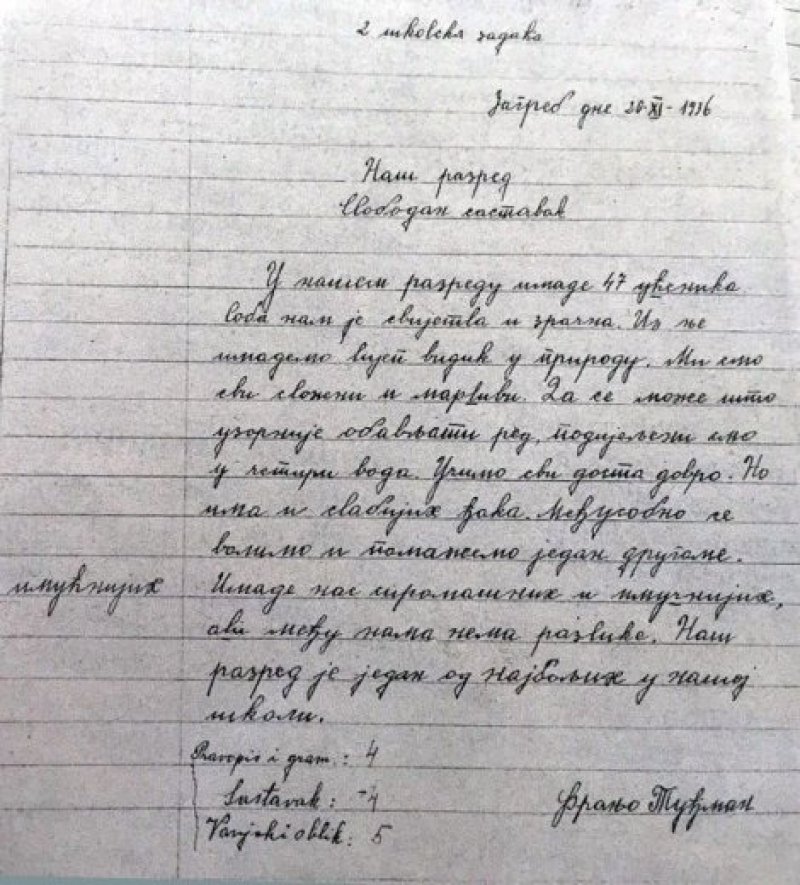 2 школска задаћа
Загреб дне 20-XI-1936
Наш разред
Слободан саставак
У нашем разреду имаде 47 ученика
Соба нам је свијетла и зрачна. Из ње
имадемо лијеп видик у природу. Ми смо
сви сложни и марљиви. Да се може што
узорније обављати ред, подијељени смо
у четири вода. Учимо сви доста добро. Но
има и слабијих ђака. Међусобно се
волимо и помажемо један другоме.
имућнијих
Имаде нас сиромашних и имучнијих,
али међу нама нема разлике. Наш
разред је један од најбољих у нашој
школи.
Pravopis i gram.: 4
Sastavak: -4
Vanjski oblik: 5
Фрањо Туђман